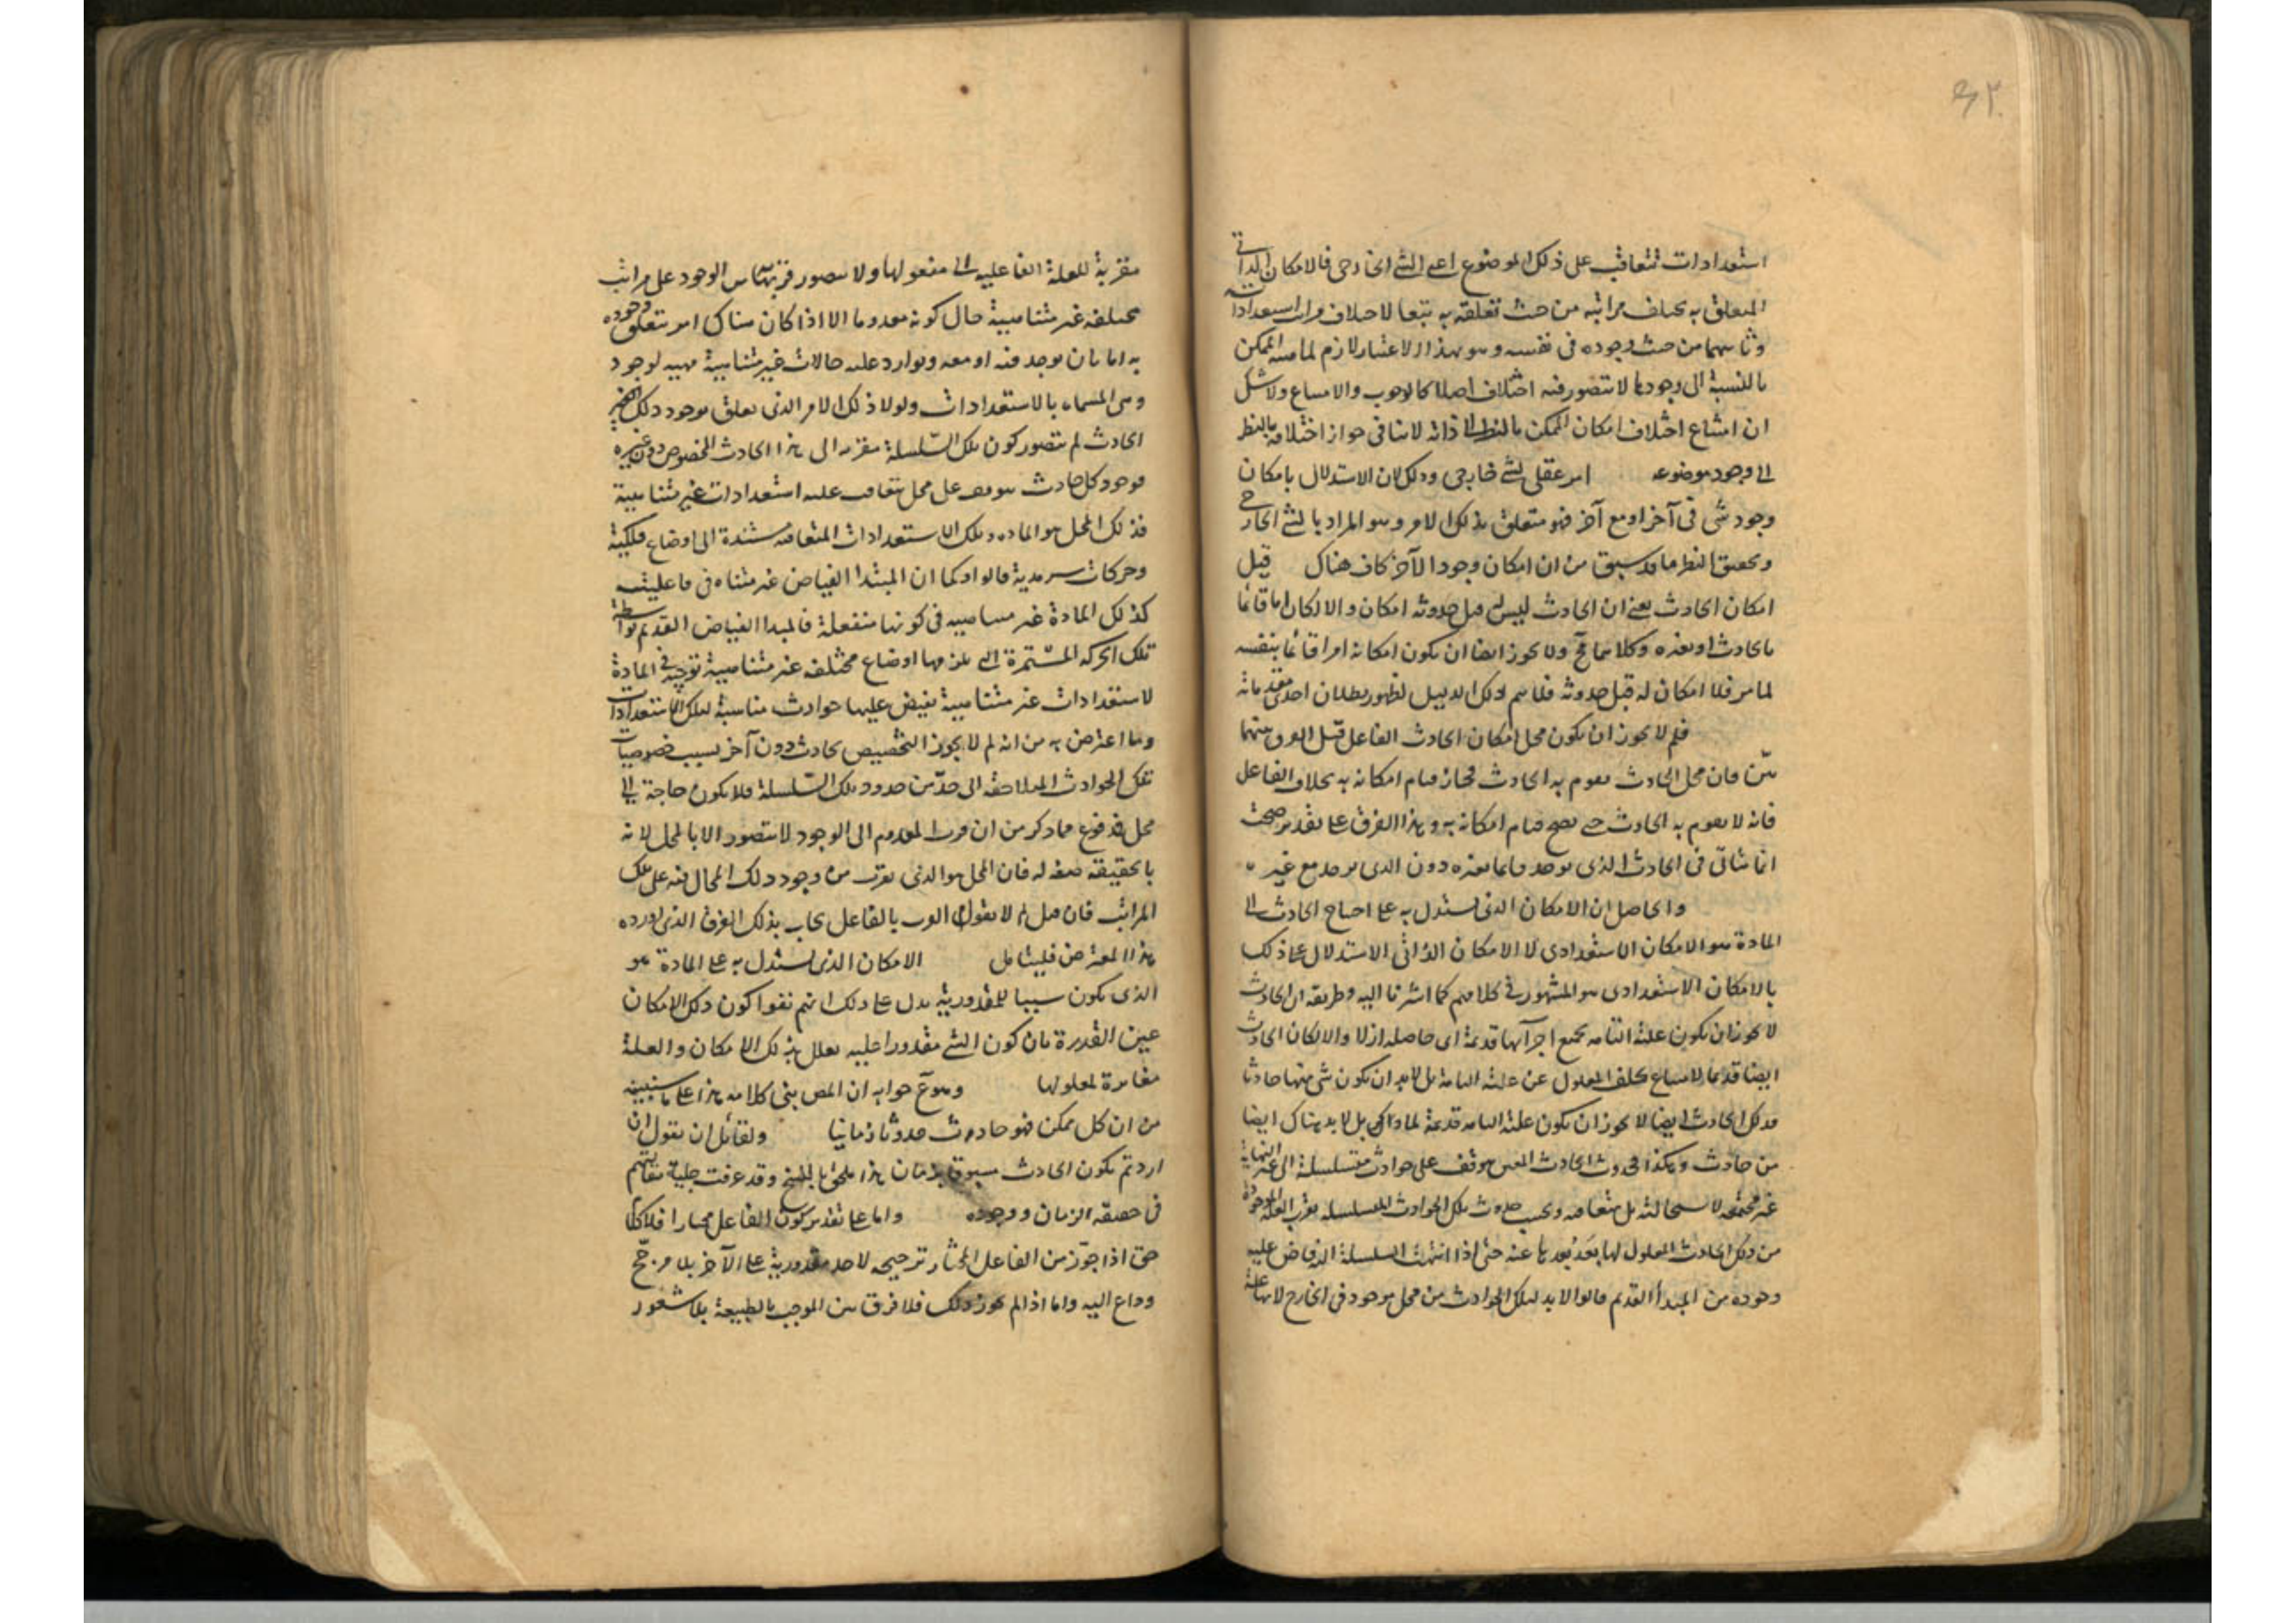 استعدادات تتعاقب على ذلك الموضوع اعنى الشئ الخارجى فالامكان الذاتى
المتعلق به يختلف مراتبه من حيث تعلقه به تبعا لاختلاف مراتب استعداداته
وثانيهما من حيث وجوده فى نفسه وهو بهذا الاعتبار لازم لماهية الممكن
بالنسبة الى وجودها لا يتصور فيه اختلاف اصلا كالوجوب والامتناع ولا شك
ان امتناع اختلاف امكان الممكن بالنظر الى ذاته لا ينافى جواز اختلافه بالنظر
الى وجود موضوعه امر عقلى لشئ خارجى وذلك لان الاستدلال بامكان
وجود شئ فى آخر او مع آخر فهو متعلق بذلك الامر وهو المراد بالشئ الخارجى
وتحقق النظر ما قد سبق من ان امكان وجود الآخر كاف هناك قيل
امكان الحادث يعنى ان الحادث ليس له قبل حدوثه امكان والا لكان اما قائما
بالحادث او بغيره وكلاهما مح ولا يجوز ايضا ان يكون امكانه امرا قائما بنفسه
لما مر فلا امكان له قبل حدوثه فلا يتم ذلك الدليل لظهور بطلان احدى مقدماته
فلم لا يجوز ان يكون محل امكان الحادث الفاعل قيل الفرق بينهما
بيّن فان محل الحادث يقوم به الحادث فجاز قيام امكانه به بخلاف الفاعل
فانه لا يقوم به الحادث حتى يصح قيام امكانه به وهذا الفرق على تقدير صحته
انما يتأتى فى الحادث الذى يوجد قائما بغيره دون الذى يوجد مع غيره
والحاصل ان الامكان الذى يستدل به على احتياج الحادث الى
المادة هو الامكان الاستعدادى لا الامكان الذاتى الاستدلال على ذلك
بالامكان الاستعدادى هو المشهور فى كلامهم كما اشرنا اليه وطريقه ان الحادث
لا يجوز ان يكون علته التامة بجميع اجزآئها قديمة اى حاصله ازلا والا لكان الحادث
ايضا قديما لامتناع تخلف المعلول عن علته التامة بل لا بد ان يكون شئ منها حادثا
فذلك الحادث ايضا لا يجوز ان يكون علته التامه قديمة لما ذكر بل لا بد هناك ايضا
من حادث وهكذا فحدوث الحادث المعين موقف على حوادث متسلسلة الى غير النهاية
غير مجتمعة لاستحالته بل متعاقبه وبحسب حدوث تلك الحوادث المتسلسلة يقرب العلة الموجدة
من ذلك الحادث المعلول لها بعد بُعدها عنه حتى اذا انتهت السلسلة اليه فاض عليه
وجوده من المبدأ القديم قالوا لا بد لتلك الحوادث من محل موجود فى الخارج لانها علة
مقربة للعلة الفاعلية الى مفعولها ولا يتصور قربها من الوجود على مراتب
مختلفه غير متناهية حال كونه معدوما الا اذا كان هناك امر يتعلق وجوده
به اما بان يوجد فيه او معه وتوارد عليه حالات غير متناهية مهيئه لوجود
وهى المسماة بالاستعدادات ولولا ذلك الامر الذى يعلق بوجود ذلك
الحادث لم يتصور كون تلك السّلسلة مقربه الى هذا الحادث المخصوص دون غيره
فوجود كل حادث موقوف على محل يتعاقب عليه استعدادات غير متناهية
فذلك المحل هو المادة وتلك الاستعدادات المتعاقبه مستندة الى اوضاع فلكية
وحركات سرمدية قالوا وكما ان المبتدا الفياض غير متناه فى فاعليته
كذلك المادة غير متناهيه فى كونها منفعلة فالمبدا الفياض القديم بواسطة
تلك الحركة المستمرة التى يلزمها اوضاع مختلفه غير متناهية توجبه فى المادة
لاستعدادات غير متناهية يفيض عليها حوادث مناسبة لتلك الاستعدادات
وما اعترض به من انه لم لا يجوز التخصيص بحادث دون آخر بسبب خصوصيات
تلك الحوادث المتلاحقة الى حدّ من حدود تلك السّلسلة فلا يكون حاجة الى
محل فمدفوع بما ذكر من ان قرب المعدوم الى الوجود لا يتصور الا بالمحل لانه
بالحقيقة صفه له فان المحل هو الذى يقرب من وجود ذلك الحال فيه على تلك
المراتب فان قيل لم لا يقول القرب بالفاعل يجاب بذلك الفرق الذى اورده
هذا المعترض فليتامل الامكان الذى يستدل به على المادة هو
الذى يكون سببا للمقدورية يدل على ذلك انهم نفوا كون ذلك الامكان
عين القدرة بان كون الشئ مقدورا عليه يعلل بذلك الامكان والعلة
مغايرة لمعلولها وهو مع جوابه ان المص بنى كلامه هذا على ما سنبينه
من ان كل ممكن فهو حادث حدوثا زمانيا ولقائل ان يقول ان
اردتم بكون الحادث مسبوقا بزمان هذا ملحق بالنسخ وقد عرفت جلية مقالهم
فى حقيقه الزمان ووجوده واما على تقدير كون الفاعل مختارا فلا كلام
حتى اذا جوّز من الفاعل المختار ترجيحه لاحد مقدوريه على الآخر بلا مرجّح
وداع اليه واما اذا لم يجوز ذلك فلا فرق بين الموجب بالطبيعة بلا شعور